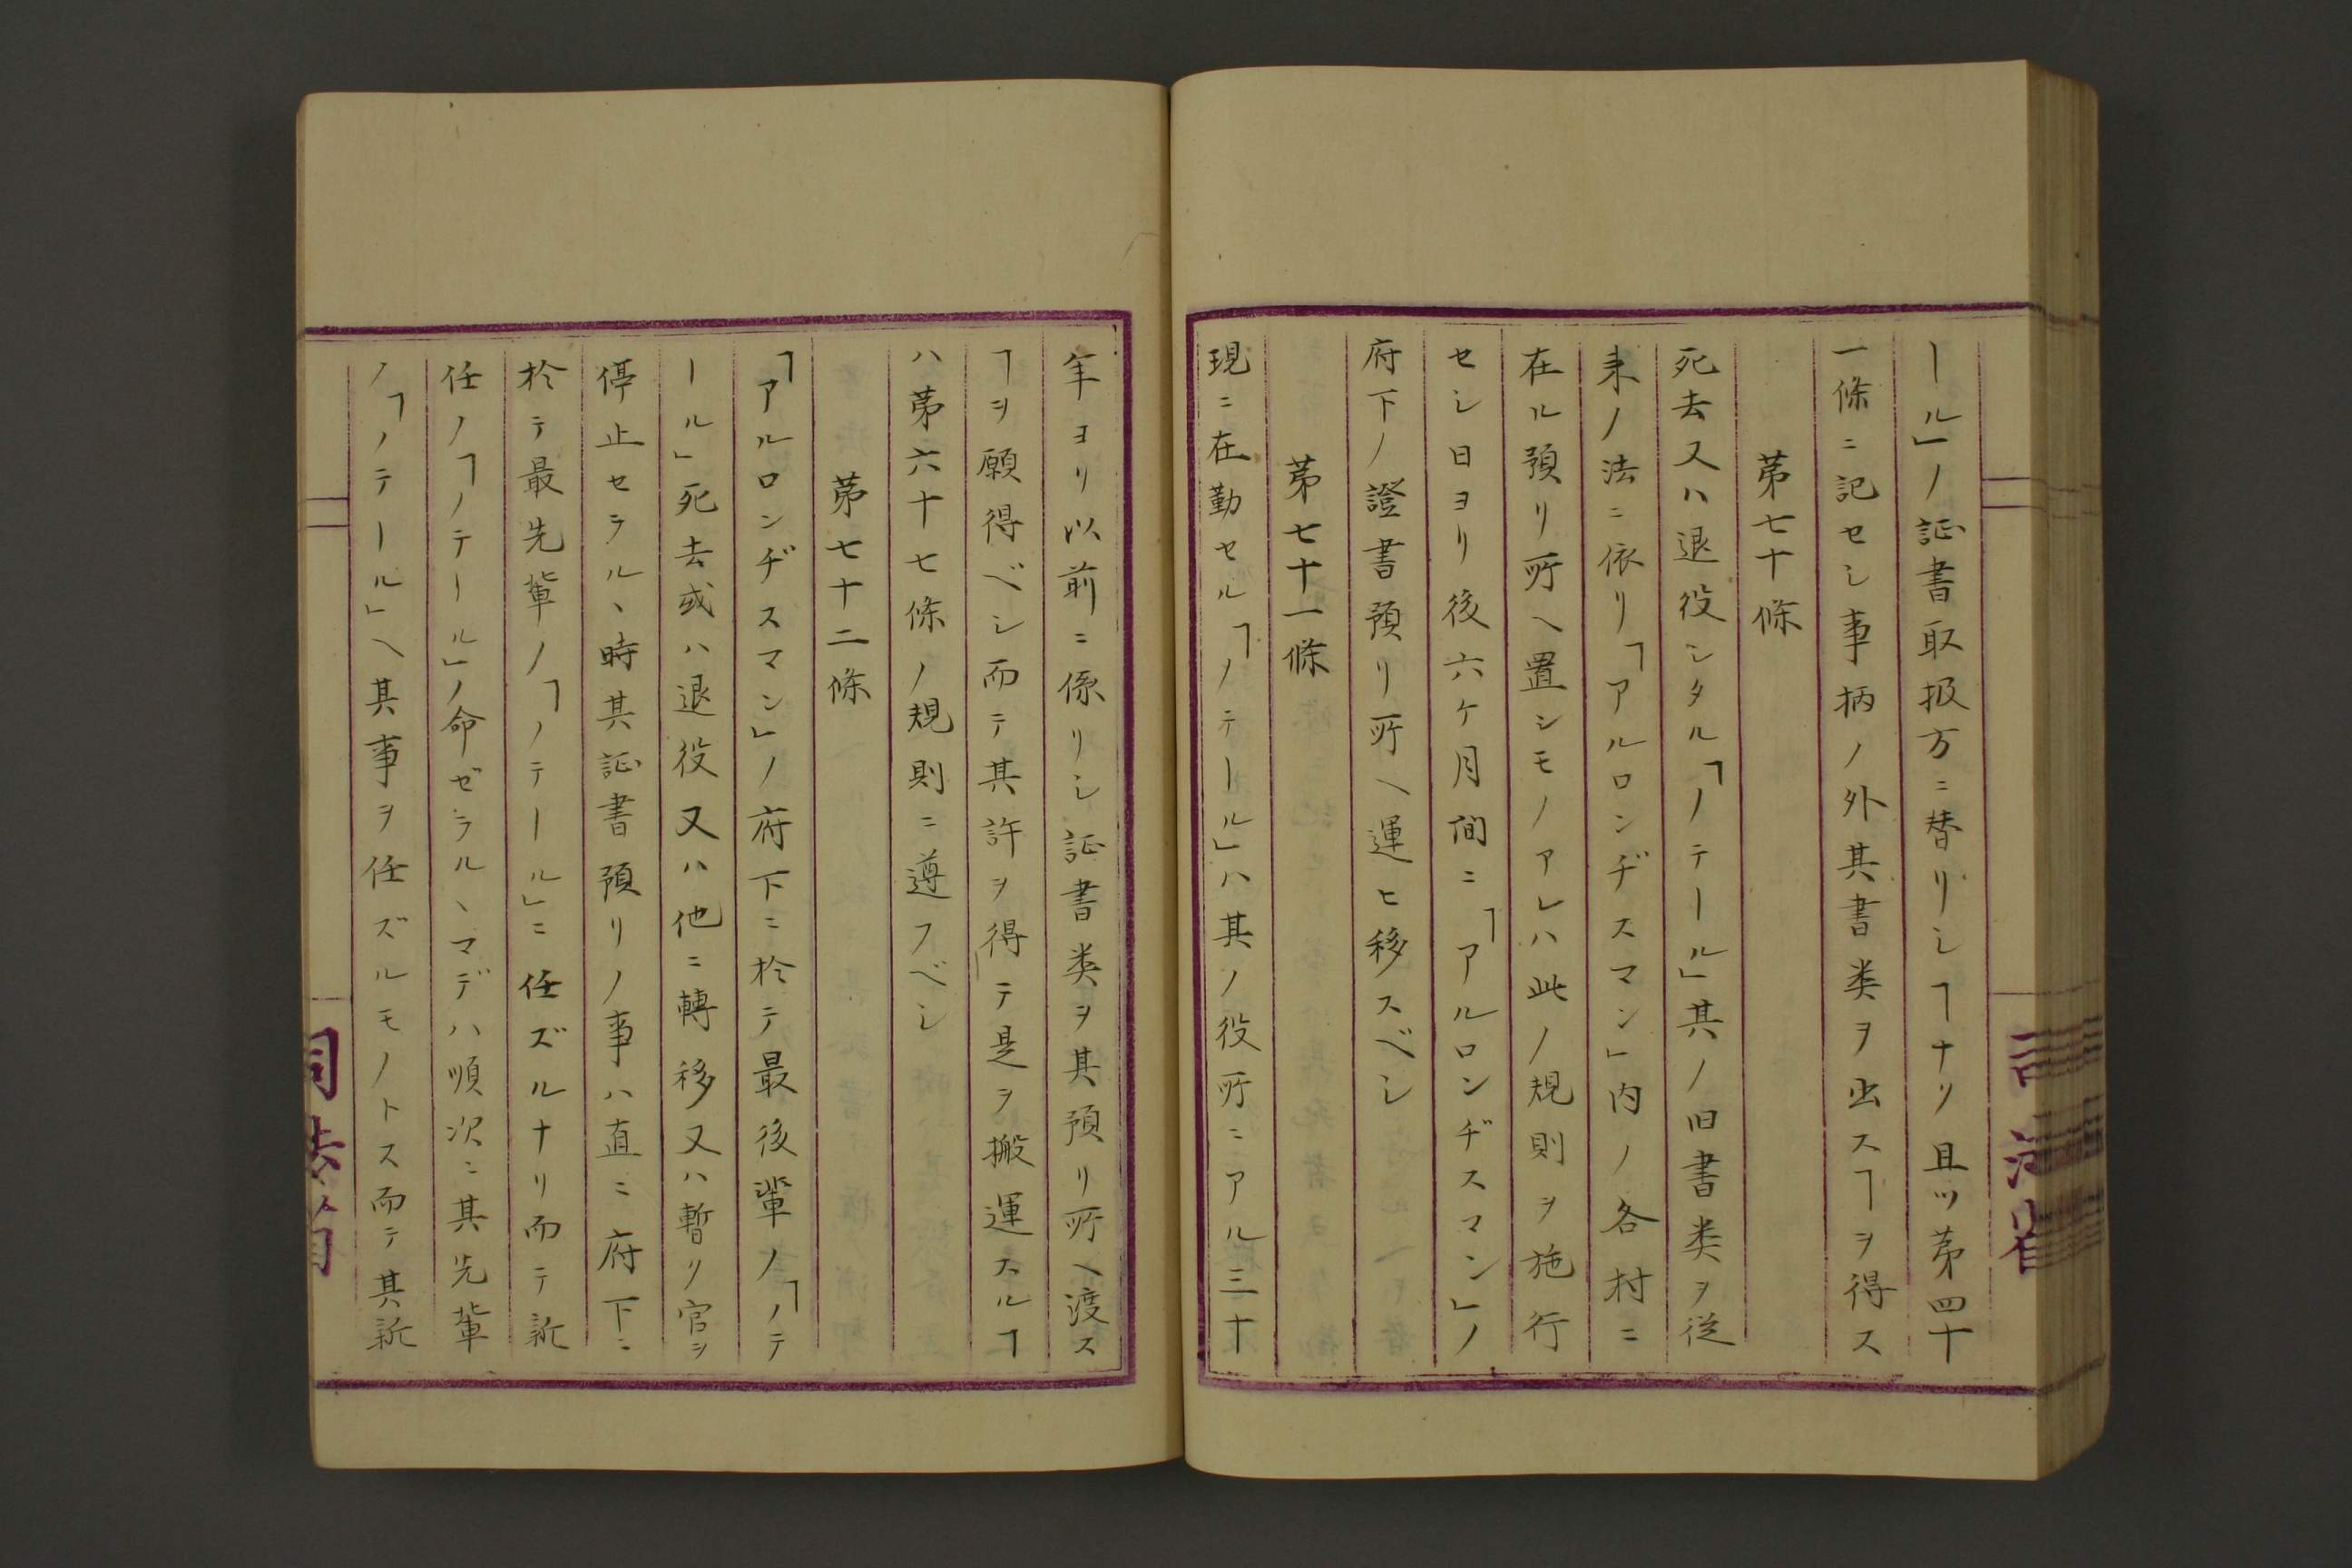 ール」ノ証書取扱方ニ替リシヿナリ且ツ第四十
一條ニ記セシ事柄ノ外其書类ヲ出スヿヲ得ス
第七十條
死去又ハ退役シタル「ノテール」其ノ旧書类ヲ従
来ノ法ニ依リ「アルロンヂスマン」内ノ各村ニ
在ル預リ所ヘ置シモノアレハ此ノ規則ヲ施行
セシ日ヨリ後六ケ月間ニ「アルロンヂスマン」ノ
府下ノ證書預リ所ヘ運ヒ移スベシ
第七十一條
現ニ在勤セル「ノテール」ハ其ノ役所ニアル三十
年ヨリ以前ニ係リシ証書类ヲ其預リ所ヘ渡ス
ヿヲ願得ベシ而テ其許ヲ得テ是ヲ搬運スルヿ
ハ第六十七條ノ規則ニ遵フベシ
第七十二條
「アルロンヂスマン」ノ府下ニ於テ最後輩ノ「ノテ
ール」死去或ハ退役又ハ他ニ轉移又ハ暫リ官ヲ
停止セラルヽ時其証書預リノ事ハ直ニ府下ニ
於テ最先輩ノ「ノテール」ニ任ズルナリ而テ新
任ノ「ノテール」ノ命ゼラルヽマデハ順次ニ其先輩
ノ「ノテール」ヘ其事ヲ任ズルモノトス而テ其新
司法省